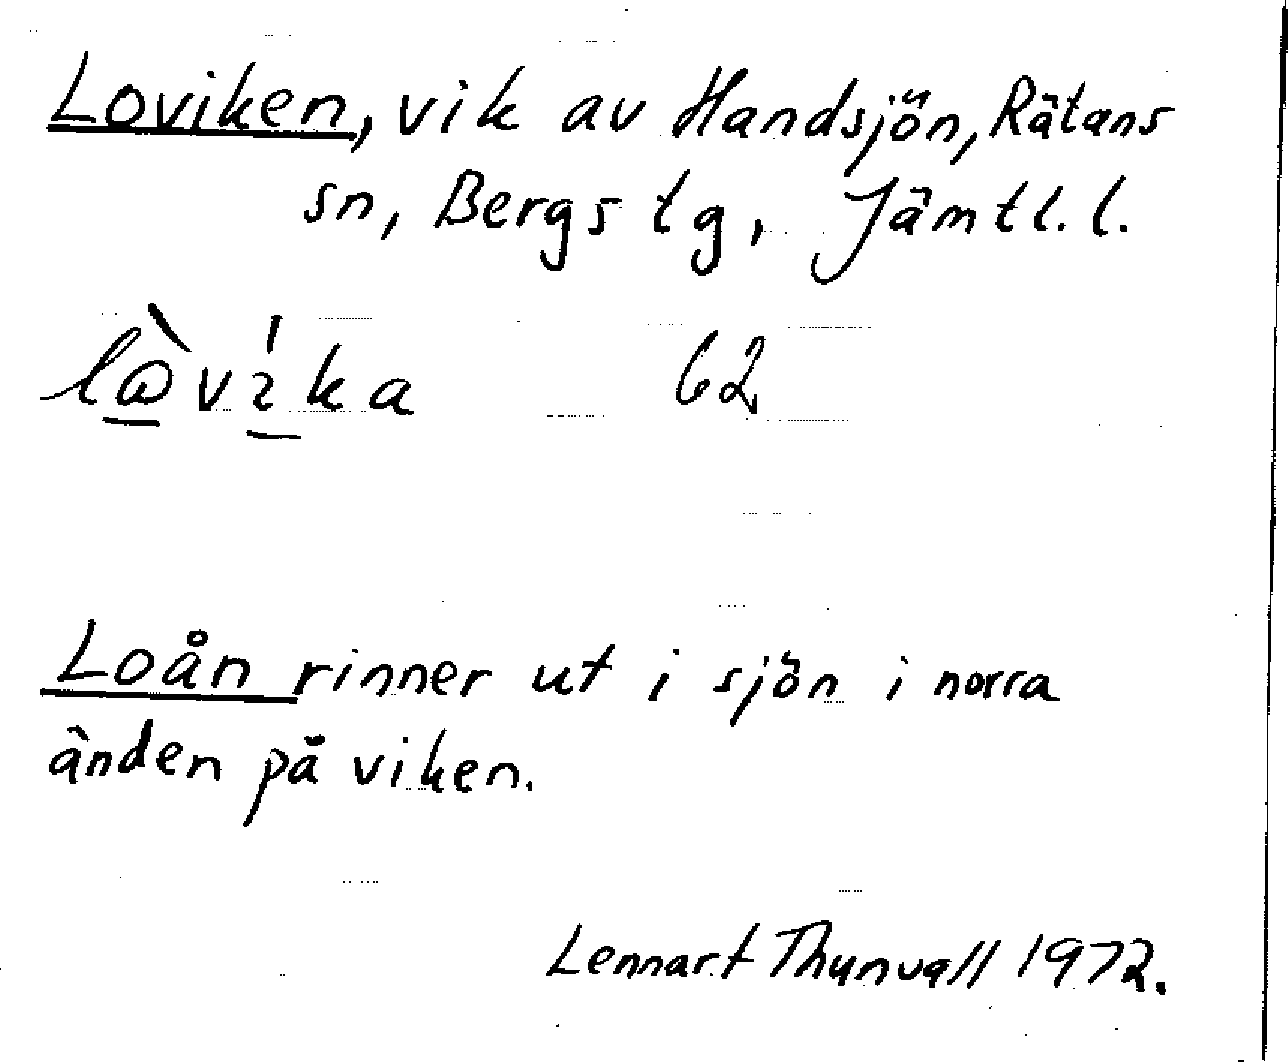 Loviken, vik av Handsjön, Rätans
sn, Bergs tg, Jämtl. l.
62
Loån rinner ut i sjön i norra
änden på viken.
Lennart Thunvall 1972.